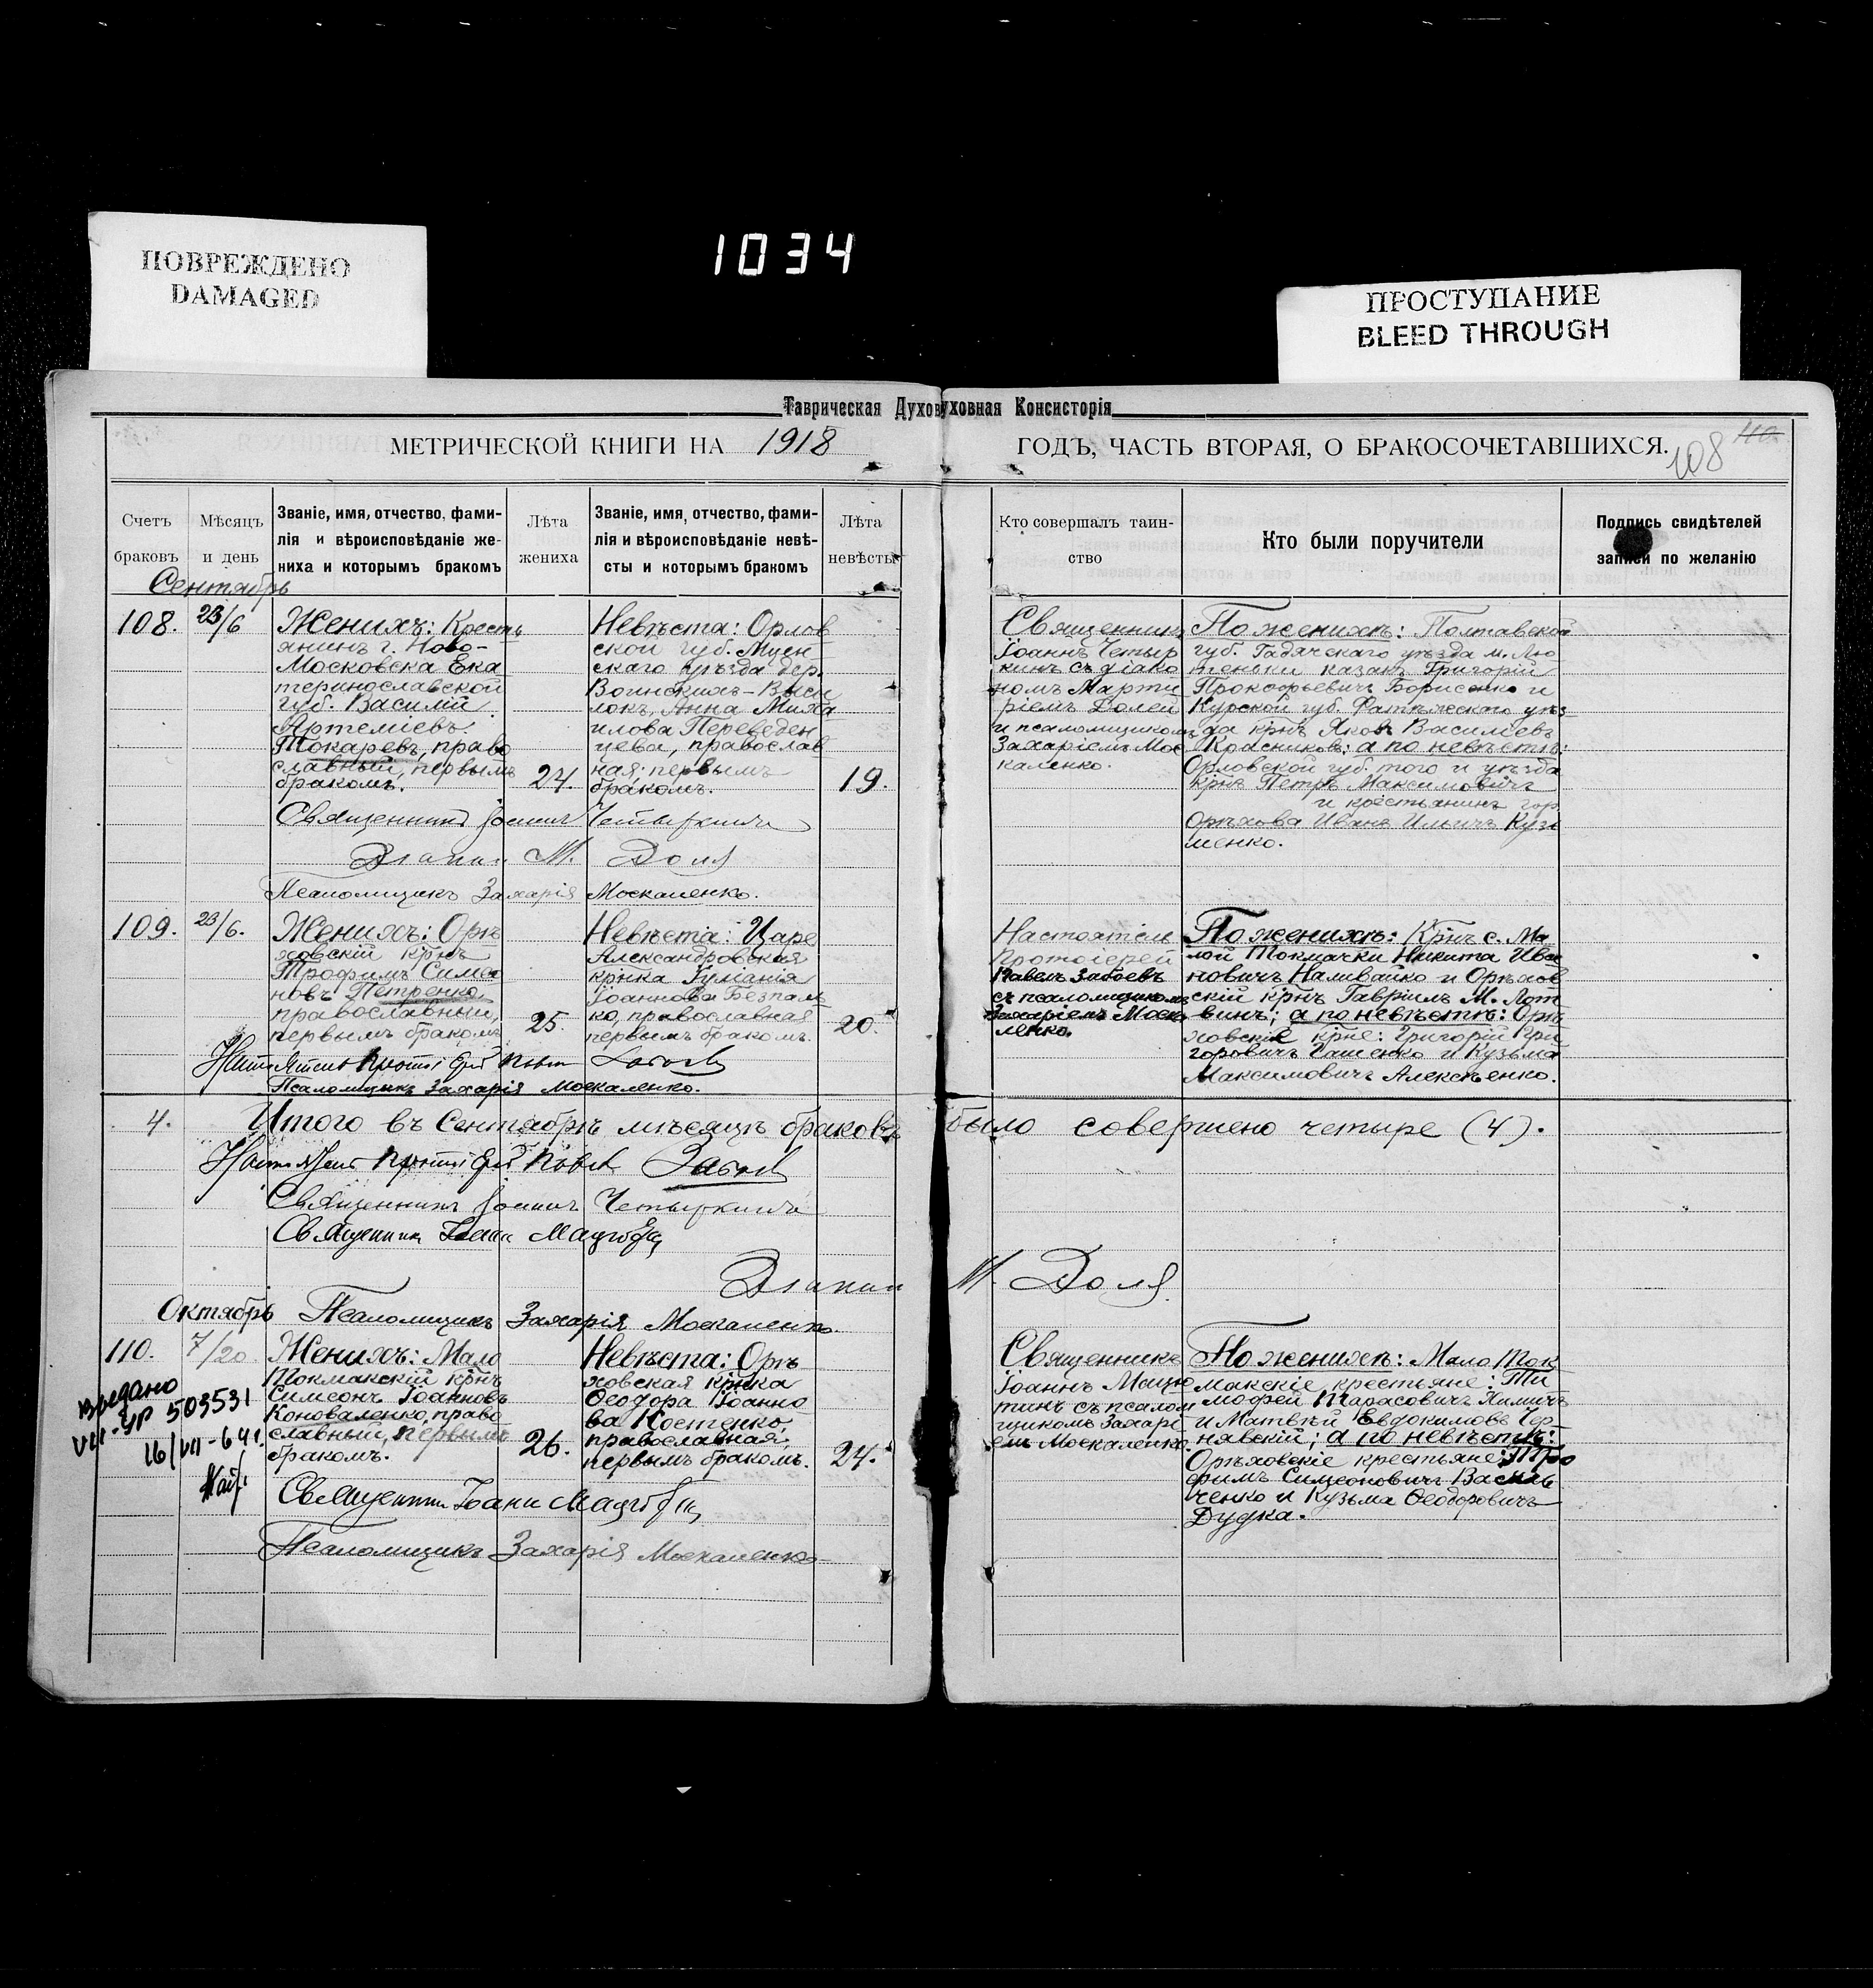 1034
ПОВРЕЖДЕНО
DAMAGED
ПРОСТУПАНИЕ
BLEED THROUGH
Таврическая Духов уховная Консисторія
МЕТРИЧЕСКОЙ КНИГИ НА 1918
ГОДЪ, ЧАСТЬ ВТОРАЯ, О БРАКОСОЧЕТАВШИХСЯ.
108
Счетъ браковъ
Мѣсяцъ и день
Званіе, имя, отчество, фами-
лія и вѣроисповѣданіе же-
ниха и которымъ бракомъ
Лѣта жениха
Званіе, имя, отчество, фами-
лія и вѣроисповѣданіе невѣ-
сты и которымъ бракомъ
Лѣта невѣсты
Кто совершалъ таин-
ство
Кто были поручители
Подпись свидѣтелей
записи по желанію
Сентябрь
108.
23/6
Женихъ: Кресть
янинъ г. Ново-
Московска Ека
теринославской
губ. Василій
Артеміевъ
Токаревъ, право
славный, первымъ
бракомъ.
24.
Невѣста: Орлов
ской губ. Мцен
скаго уѣзда дер.
Воинскихъ-Высе
локъ, Анна Миха
илова Переведен
цева, православ
ная; первымъ
бракомъ.
19.
Священникъ
Іоаннъ Четыр
кинъ съ діако
номъ Марти
ріемъ Долей
и псаломщикомъ
Захаріемъ Мос
каленко.
По женихѣ: Полтавской
губ. Гадячскаго уѣзда м. Лю
теньки казакъ Григорій
Прокофьевичъ Борисенко и
Курской губ. Фатежскаго уѣз
да крнъ Яковъ Васильевъ
Красниковъ; а по невѣстѣ:
Орловской губ. того и уѣзда
крнъ Петръ Максимовичъ
и крестьянинъ гор.
Орѣхова Иванъ Ильичъ Кузь
менко.
Священникъ Іоаннъ Четыркинъ
Діаконъ М. Доля
Псаломщикъ Захарія Москаленко.
109.
23/6.
Женихъ: Орѣ
ховскій крнъ
Трофимъ Симео
новъ Петренко,
православный,
первымъ бракомъ
25.
Невѣста: Царе
Александровская
крнка Іуліанія
Іоаннова Безпаль
ко, православная
первымъ бракомъ.
20.
Настоятель
Протоіерей
Павелъ Забоевъ
съ псаломщикомъ
Захаріемъ Моска
ленко.
По женихѣ: Крнъ с. Ма
лой Токмачки Никита Ива
новичъ Наливайко и Орѣхов
скій крнъ Гавріилъ М. Лот
винъ; а по невѣстѣ: Орѣ
ховскіе крне: Григорій Гри
горовичъ Гашенко и Кузьма
Максимовичъ Алексѣенко.
Настоятель Протоіерей Павелъ Забоевъ
Псаломщикъ Захарія Москаленко.
4.
Итого въ Сентябрѣ мѣсяцѣ браковъ было совершено четыре (4).
Настоятель Протоіерей Павелъ Забоевъ
Священникъ Іоаннъ Четыркинъ
Священникъ Іоаннъ
Діаконъ М. Доля
Псаломщикъ Захарія Москаленко.
Октябрь
110.
7/20.
Женихъ: Мало
Токмакскій крнъ
Симеонъ Іоанновъ
Коноваленко, право
славный, первымъ
бракомъ.
26.
Невѣста: Орѣ
ховская крнка
Ѳеодора Іоанно
ва Костенко
православная,
первымъ бракомъ.
24.
Священникъ
Іоаннъ Мацю
тинъ съ псалом
щикомъ Захарі
емъ Москаленко.
По женихѣ: Мало Ток
макскіе крестьяне: Ти
мофей Тарасовичъ Химичъ
и Матвѣй Евдокимовъ Чер
нявскій; а по невѣстѣ:
Орѣховскіе крестьяне: Тро
фимъ Симеоновичъ Василь
ченко и Кузьма Ѳеодоровичъ
Дудка.
503531
16/VII-641.
Священникъ Іоаннъ
Псаломщикъ Захарія Москаленко